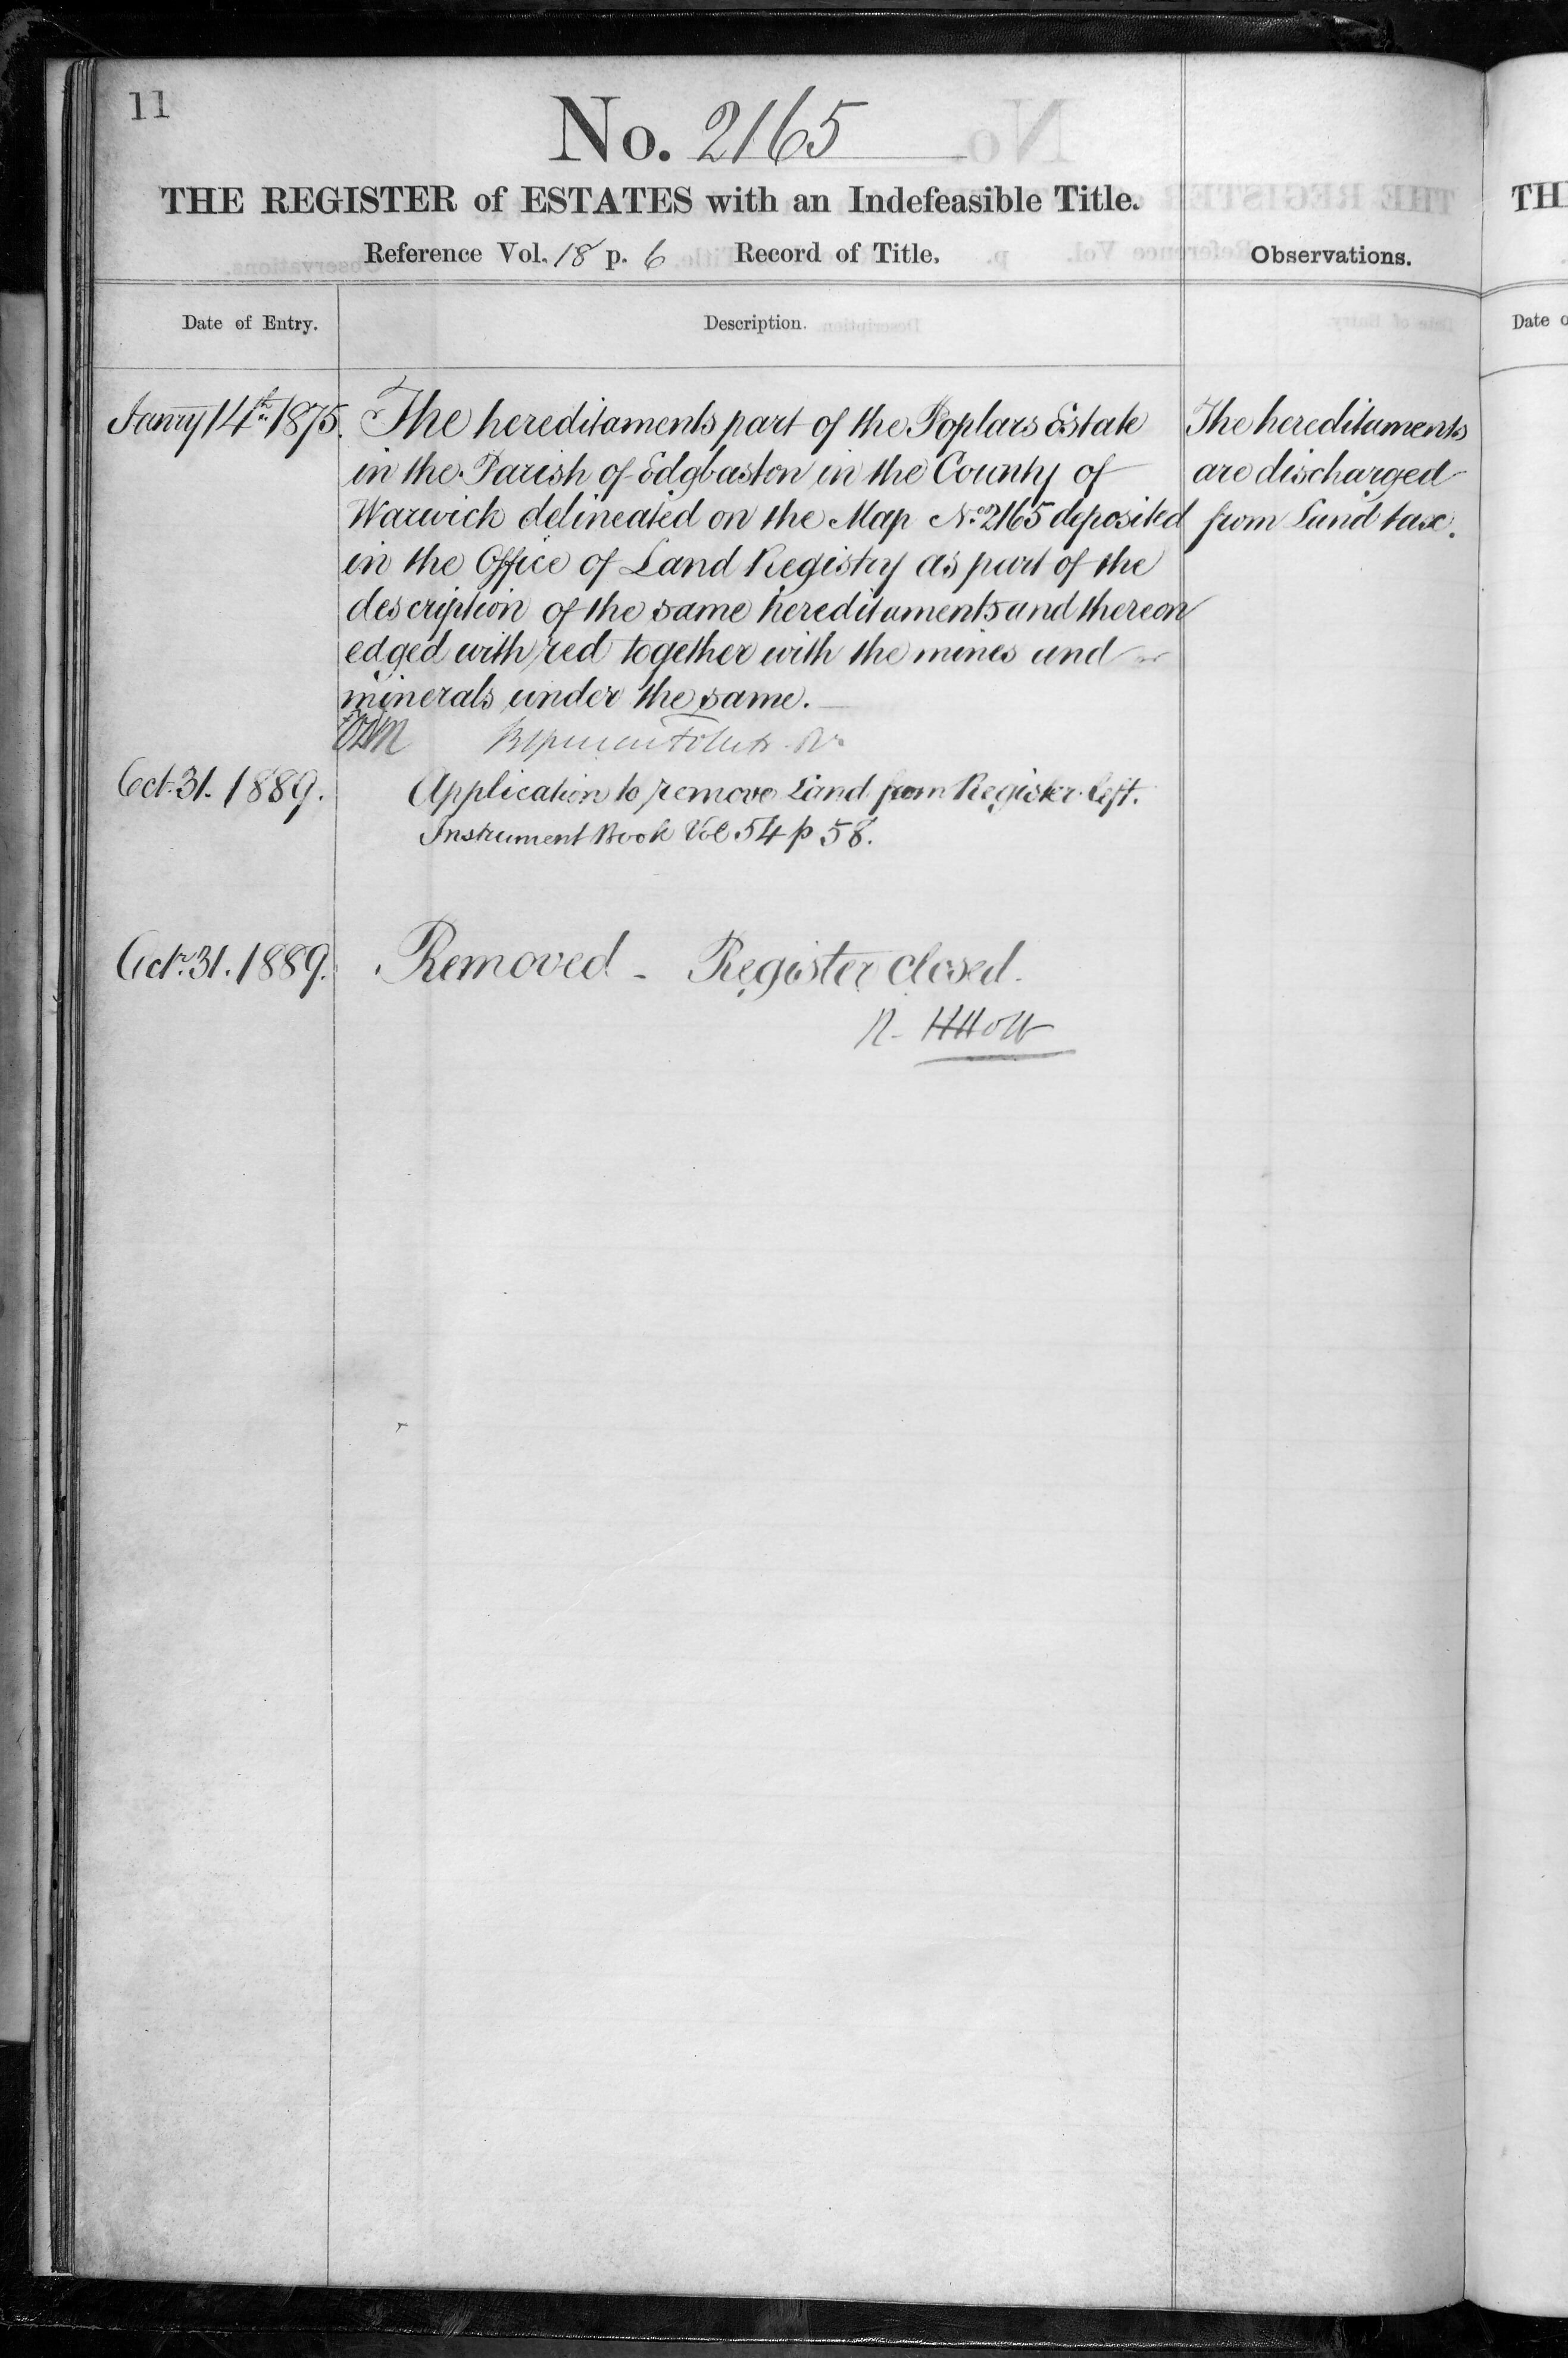 11
No. 2165
THE REGISTER of ESTATES with an Indefeasible Title.
Reference Vol. 18 p. 6 Record of Title.
Observations.
Date of Entry.
Description.
Janry 14th 1875.
The hereditaments part of the Poplars Estate
in the Parish of Edgbaston in the County of
Warwick delineated on the Map No. 2165 deposited
in the Office of Land Registry as part of the
description of the same hereditaments and thereon
edged with red together with the mines and
minerals under the same.
The hereditaments
are discharged
from Land tax.
Oct. 31. 1889.
Application to remove Land from Register left.
Instrument Book Vol 54 p 58.
Octr. 31. 1889.
Removed - Register closed.
R. H Holt
TH
Date o